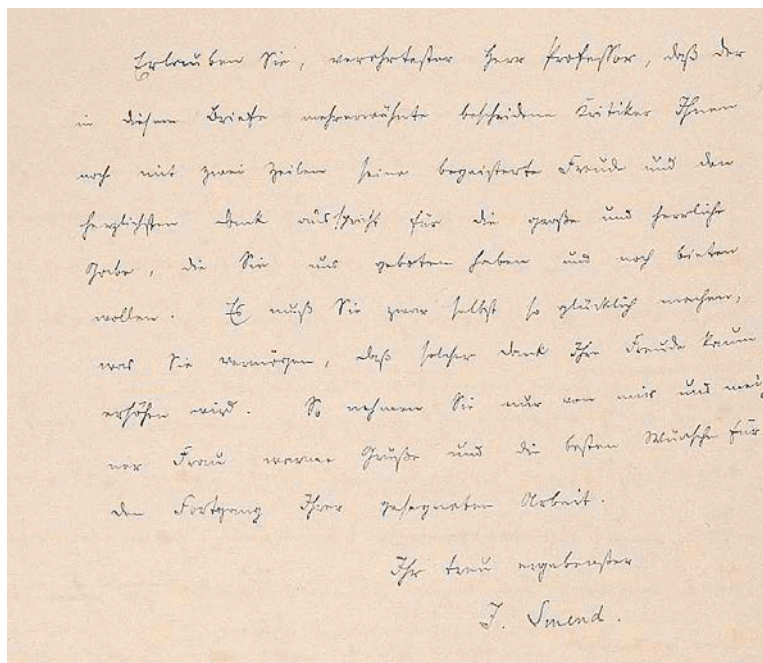 Erlauben Sie, verehrtester Herr Professor, daß der
in diesem Briefe mehrerwähnte bescheidene Kritiker Ihnen
noch mit zwei Zeilen seine begeisterte Freude und den
herzlichsten Dank ausspricht für die große und herrliche
Gabe, die Sie uns geboten haben und noch bieten
wollen. Es muß Sie zwar selbst so glücklich machen,
was Sie vermögen, daß solcher Dank Ihre Freude kaum
erhöhen wird. So nehmen Sie nur von mir und mei-
ner Frau warme Grüße und die besten Wünsche für
den Fortgang Ihrer gesegneten Arbeit.
Ihr treu ergebenster
J. Smend.